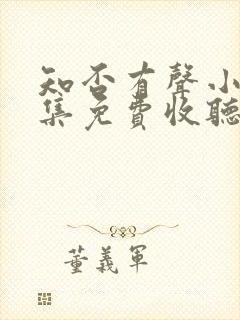 知否有聲小
集免費收聽
董義軍